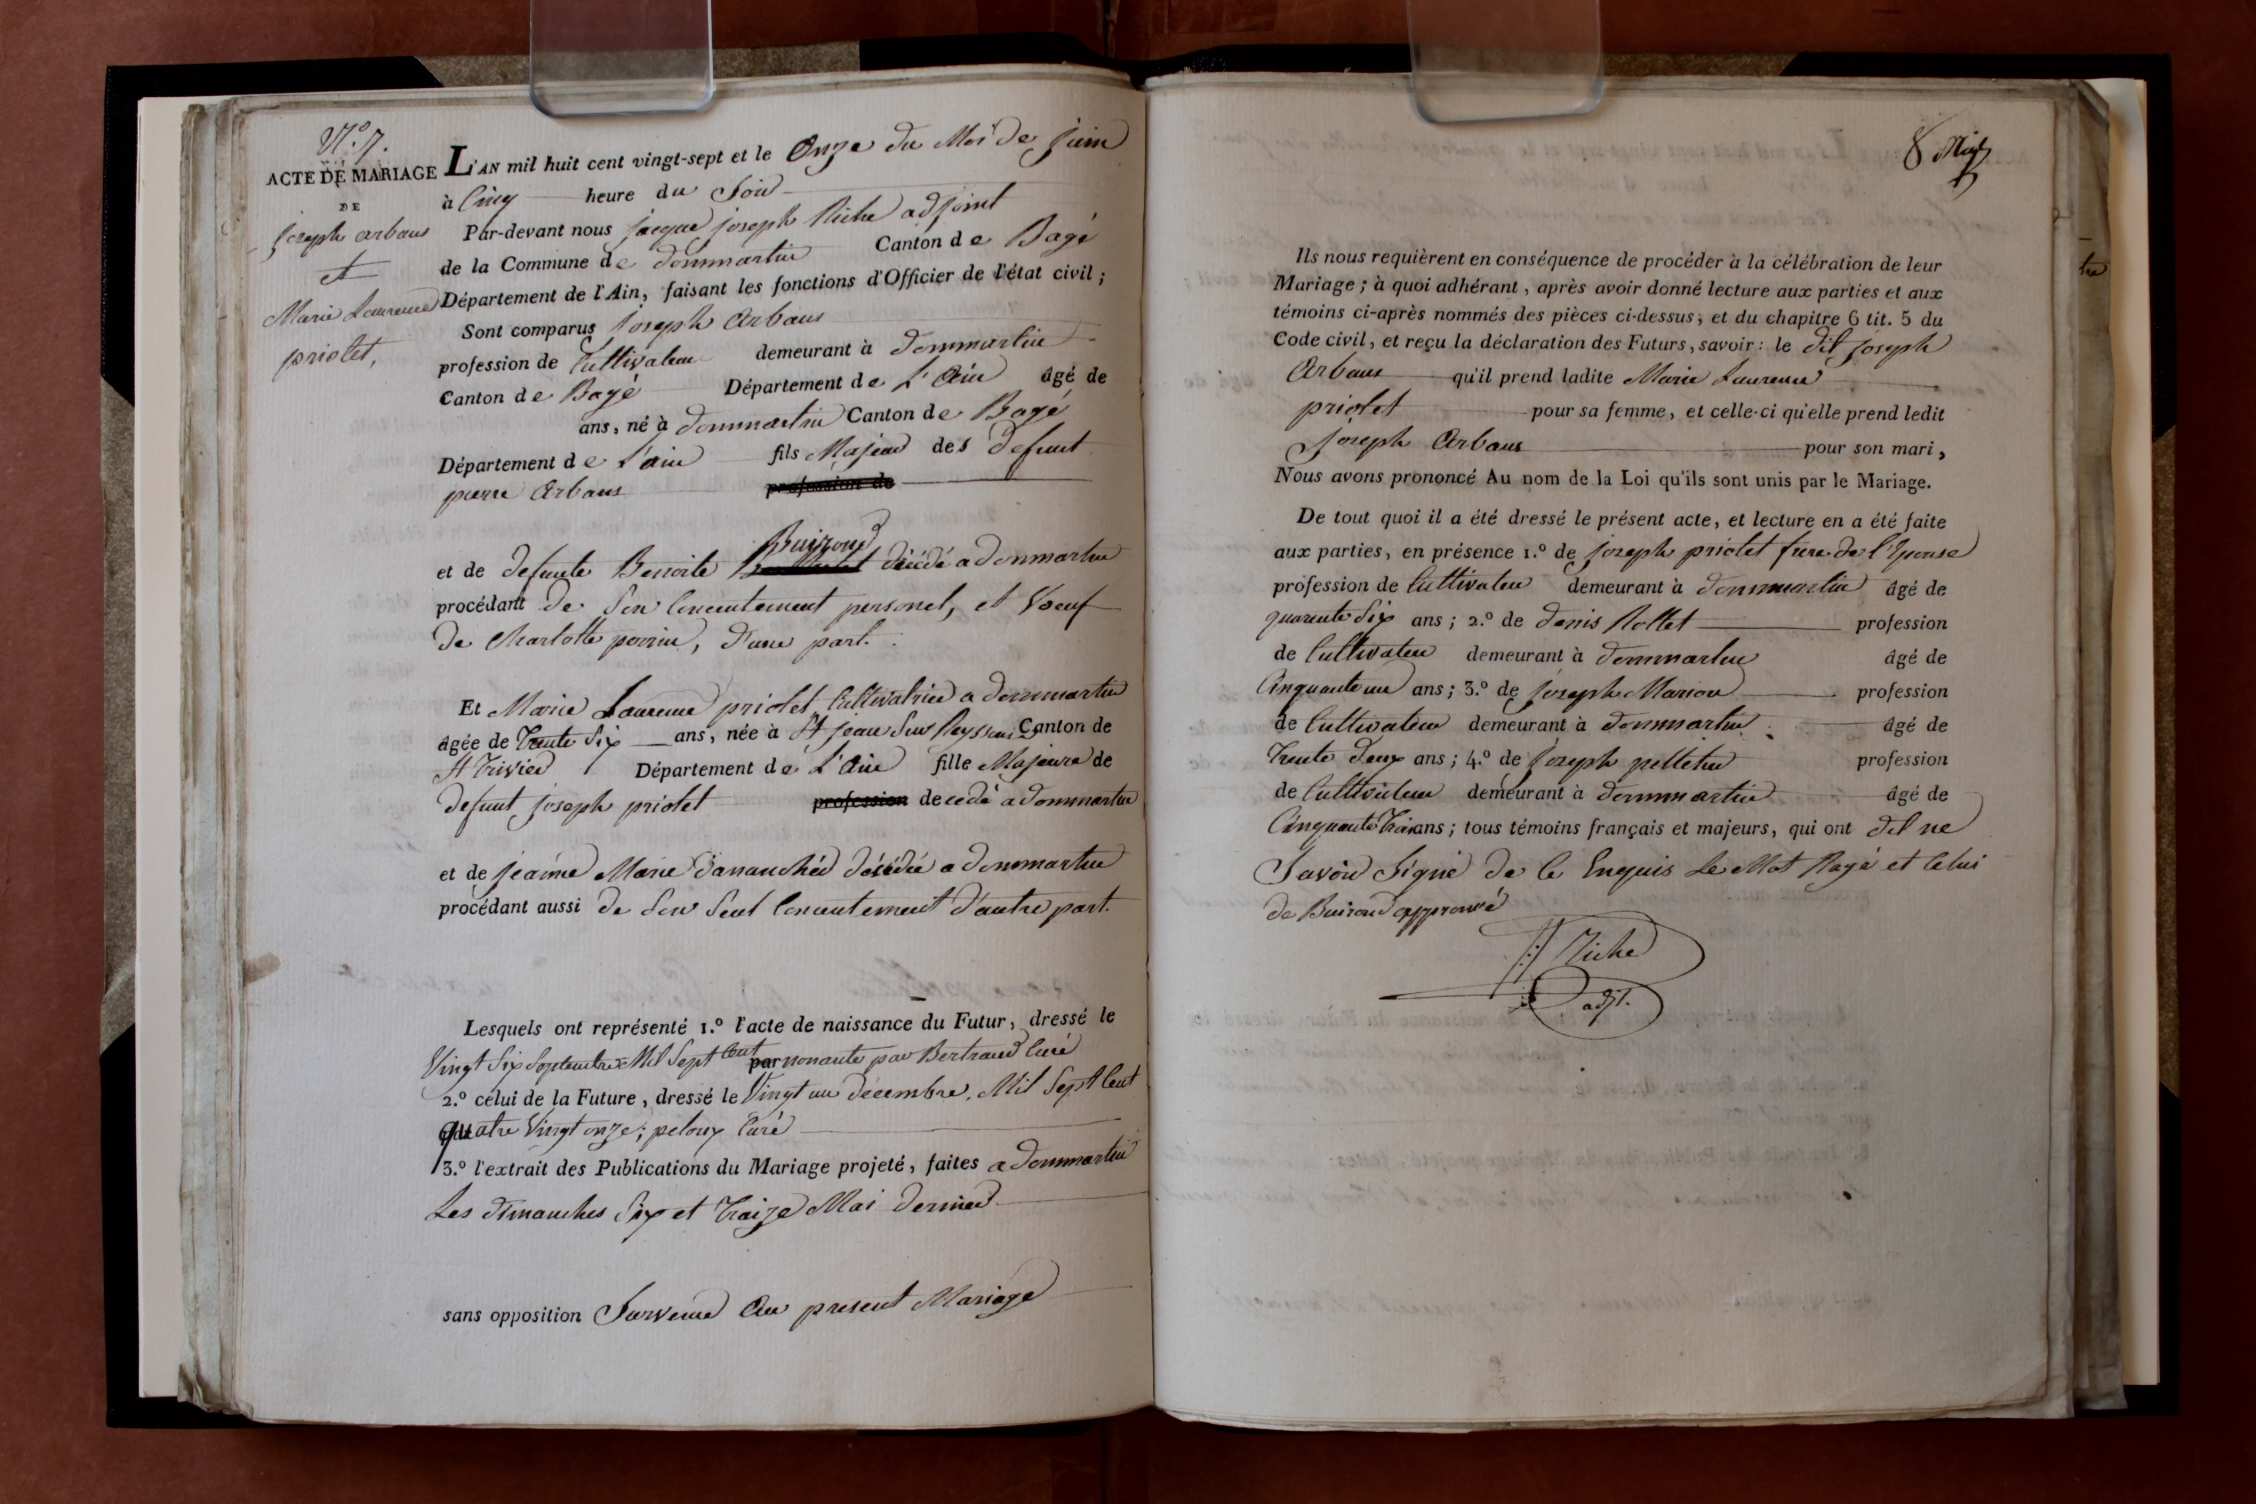 N.º 7.
ACTE DE MARIAGE
DE
joseph arbans
et
Marie Laurence
priolet,
L'AN mil huit cent vingt-sept et le Onze du Moi de juin
à Cinq heure du Soir
Par-devant nous jacque joseph Riche adjoint
de la Commune de dommartin Canton de Bagé
Département de l'Ain, faisant les fonctions d'Officier de l'état civil;
Sont comparus joseph Arbans
profession de Cultivateur demeurant à dommartin
Canton de Bagé Département de L'Ain âgé de
ans, né à dommartin Canton de Bagé
Département de L'ain fils Majeur des defunt
pierre Arbans profession de
Buiron
et de defunte Benoite décédé a dommartin
procédant de Son Concentement personel, et Voeuf
de Charlotte perrin, d'une part.
Et Marie Laurence priolet Cultivatrice a dommartin
âgée de trente Six ans, née à St jean Sur Reyssouze Canton de
St Trivier Département de L'Ain fille Majeure de
defunt joseph priolet profession decedé a dommartin
et de jeanne Marie danancher décédée a dommartin
procédant aussi de Son Seul Concentement d'autre part.
Lesquels ont représenté 1.º l'acte de naissance du Futur, dressé le
Vingt Six Septembre Mil Sept Cent par nonante par Bertrand Curé
2.º celui de la Future, dressé le Vingt un decembre, Mil Sept Cent
quatre Vingt onze; peloux Curé
3.º l'extrait des Publications du Mariage projeté, faites a dommartin
Les dimanches Six et traize Mai dernier
sans opposition Survenue Au present Mariage
8
Ils nous requièrent en conséquence de procéder à la célébration de leur
Mariage; à quoi adhérant, après avoir donné lecture aux parties et aux
témoins ci-après nommés des pièces ci-dessus, et du chapitre 6 tit. 5 du
Code civil, et reçu la déclaration des Futurs, savoir: le dit joseph
Arbans qu'il prend ladite Marie Laurence
priolet pour sa femme, et celle-ci qu'elle prend ledit
joseph Arbans pour son mari,
Nous avons prononcé Au nom de la Loi qu'ils sont unis par le Mariage.
De tout quoi il a été dressé le présent acte, et lecture en a été faite
aux parties, en présence 1.º de joseph priolet frere de l'Epouse
profession de Cultivateur demeurant à dommartin âgé de
quarente Six ans; 2.º de denis Rollet profession
de Cultivateur demeurant à dommartin âgé de
Cinquante un ans; 3.º de joseph Marion profession
de Cultivateur demeurant à dommartin âgé de
trente deux ans; 4.º de joseph pelletin profession
de Cultivateur demeurant à dommartin âgé de
Cinquante trois ans; tous témoins français et majeurs, qui ont dit ne
Savoir Signé de ce Enquis Le Mot Rayé et Celui
de Buiron approuvé
Riche
adjt.